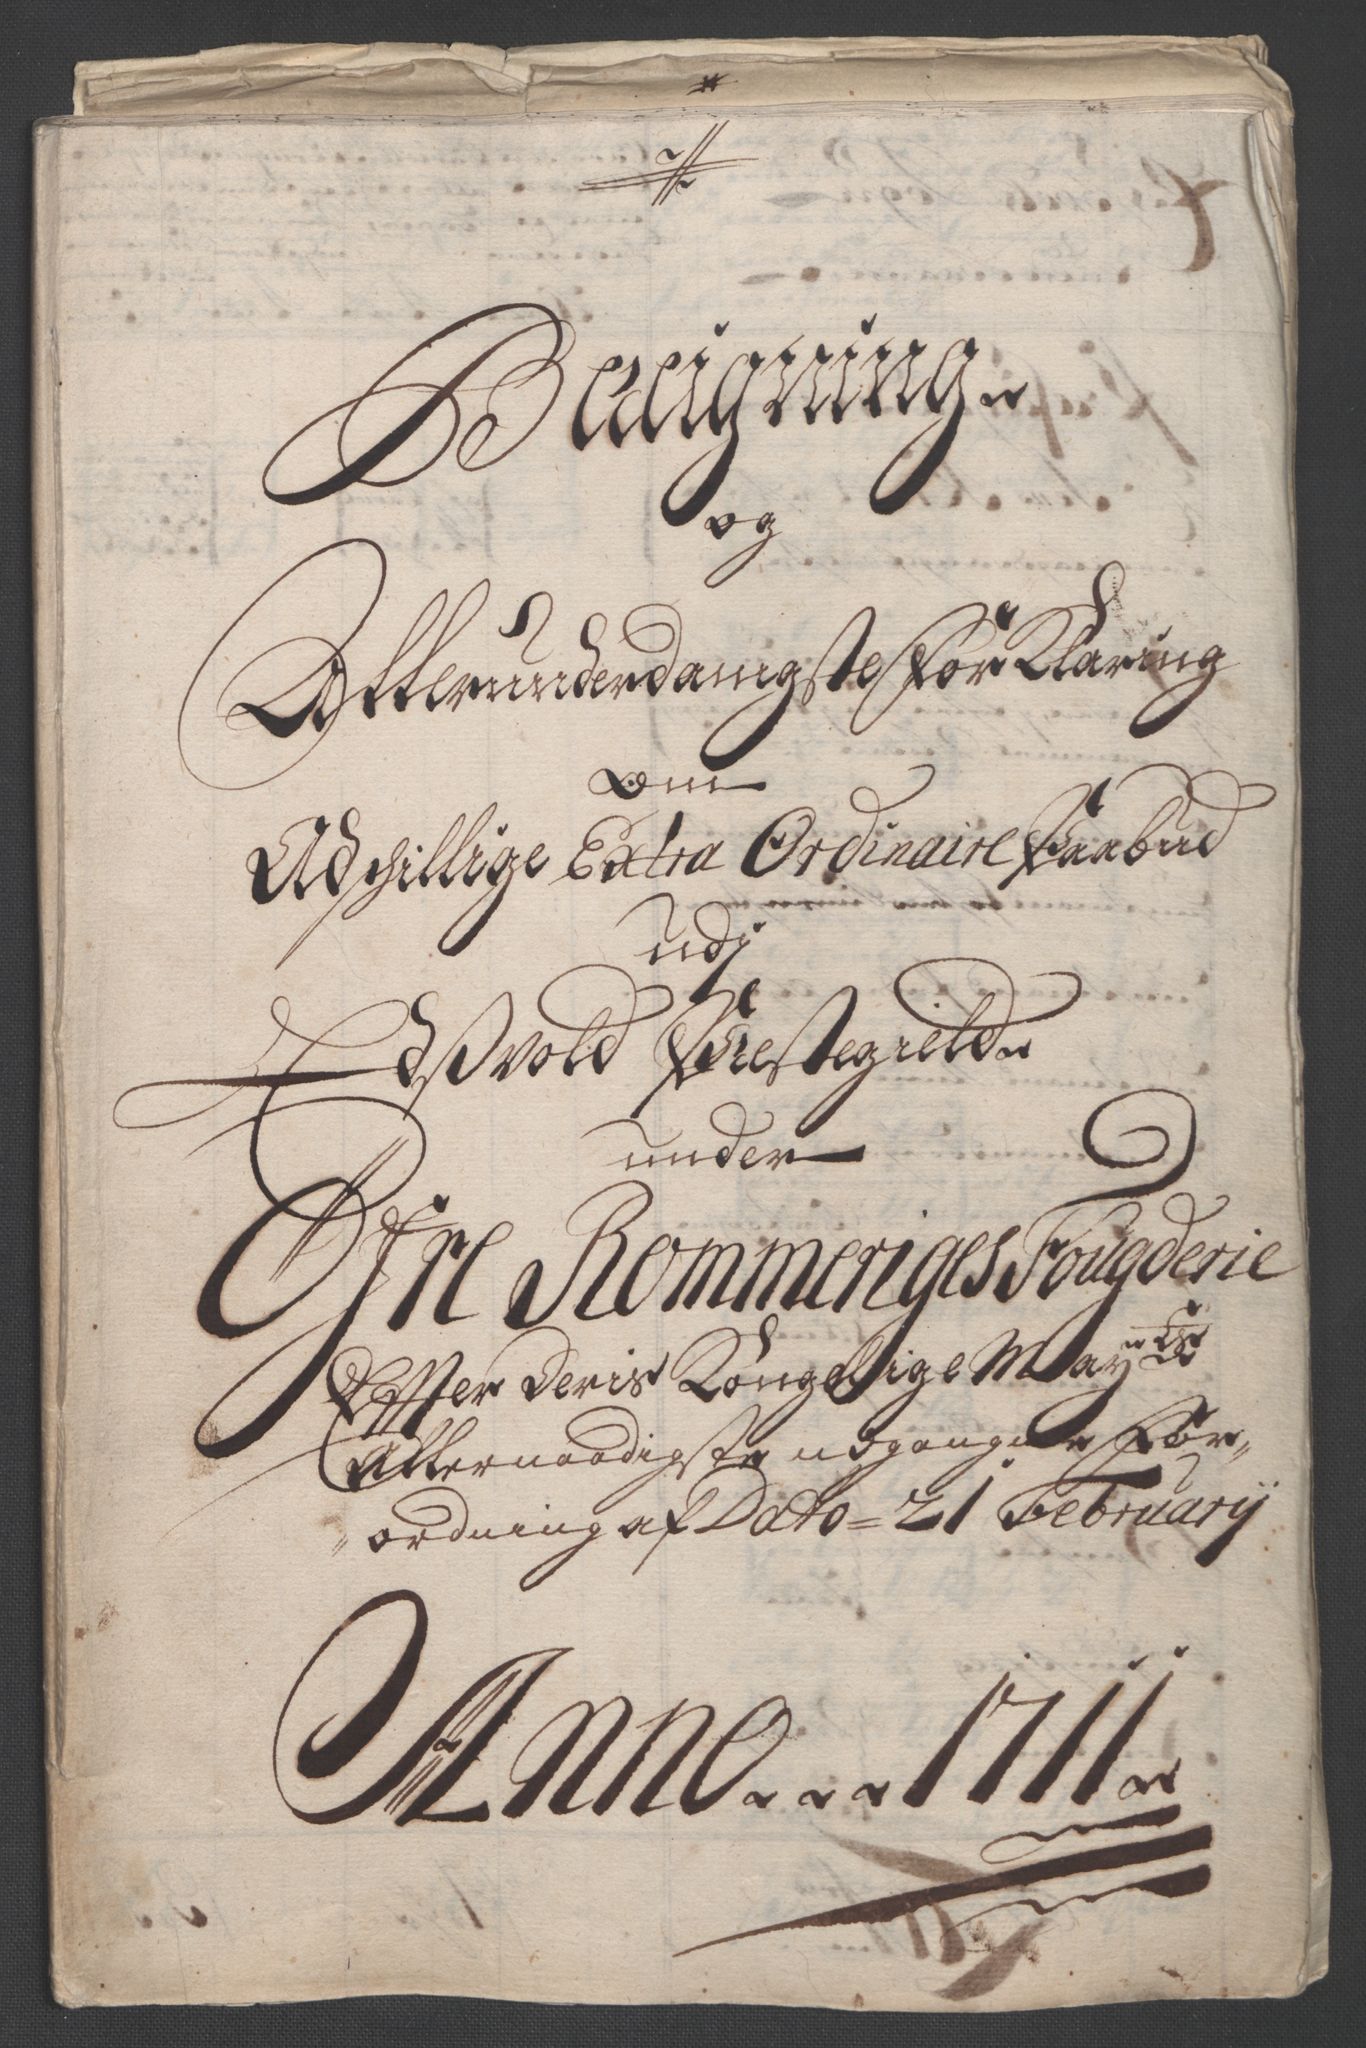 Beleigning
og
Allerunderdanigste forklaring
om
Adschillige Extra Ordinaire Paabud
udj
Edsvold Præstegield
under
Øfre Rommeriges Fougderie
Efter deris Kongellige Mayts
Allernaadigste udgangne For-
ordning af Dato 21 February
Anno 1711